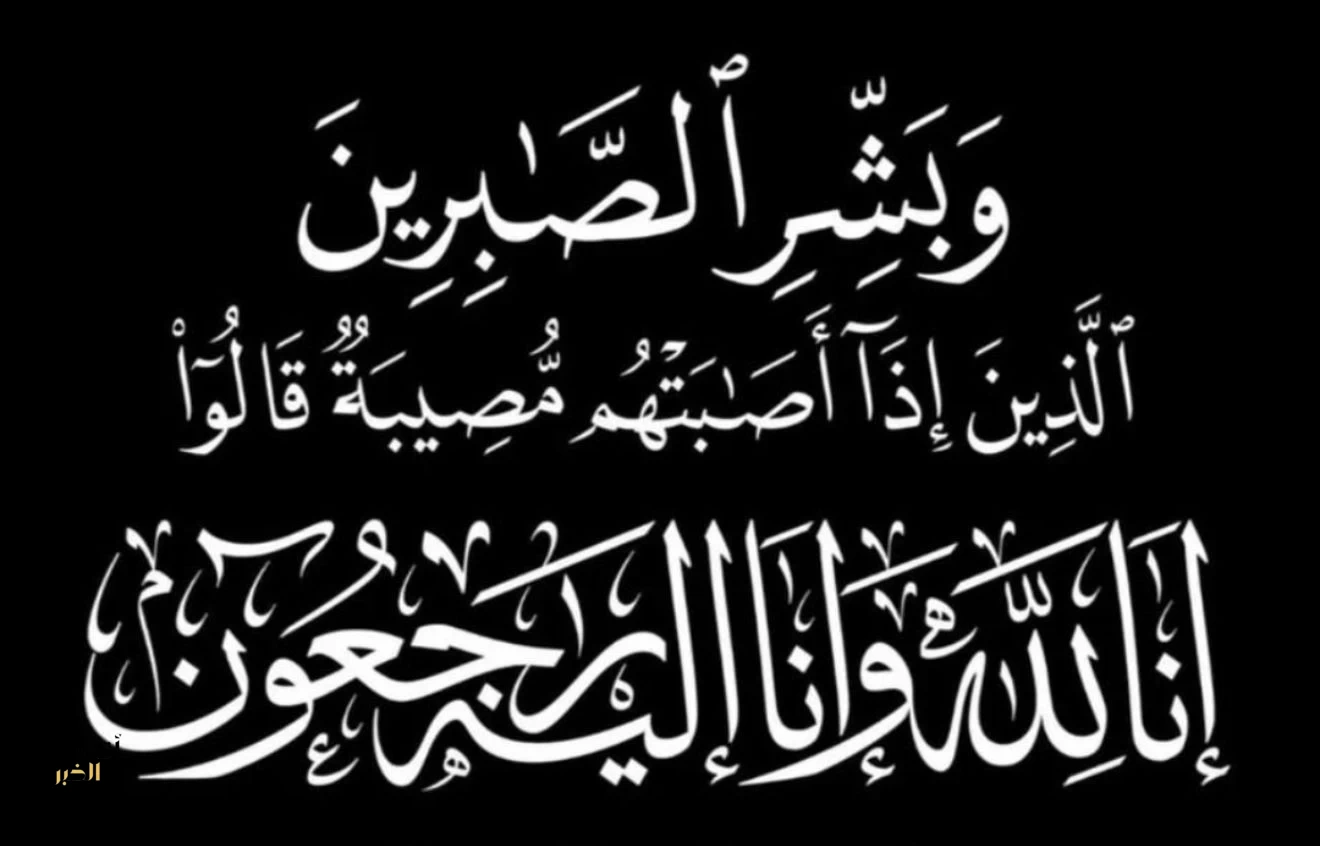 وَبَشِّرِ ٱلصَّـٰبِرِينَ
ٱلَّذِينَ إِذَآ أَصَـٰبَتْهُم مُّصِيبَةٌ قَالُوٓا۟
إنا لله وإنا إليه راجعون
الخبر